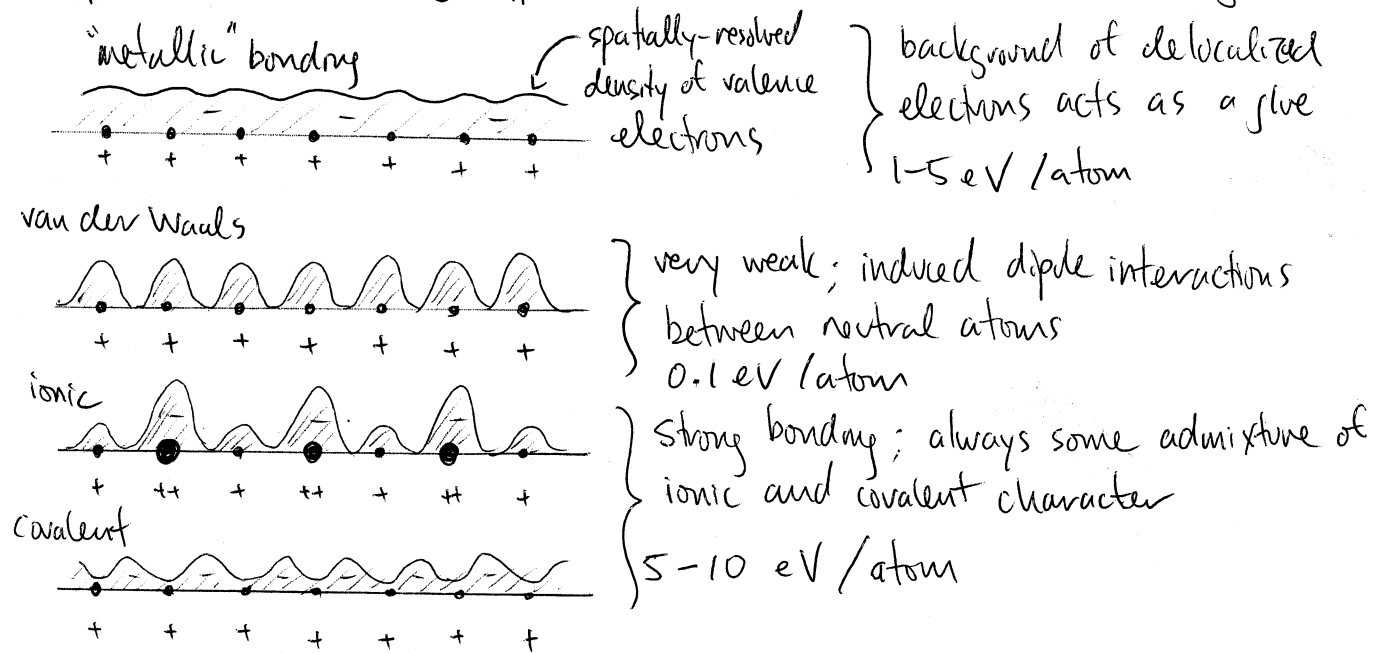 "metallic" bonding
spatially-resolved
density of valence
electrons
background of delocalized
electrons acts as a glue
1-5 eV /atom
- - -
+ + + + + + +
van der Waals
very weak; induced dipole interactions
between neutral atoms
0.1 eV /atom
+ + + + + + +
ionic
strong bonding; always some admixture of
ionic and covalent character
5-10 eV /atom
- - -
+ ++ + ++ + ++ +
covalent
- - - - - -
+ + + + + + +